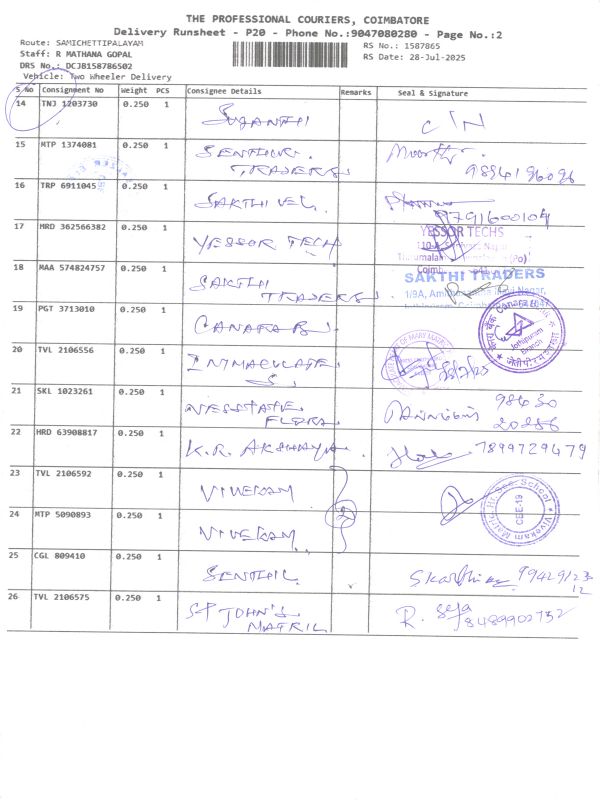 THE PROFESSIONAL COURIERS, COIMBATORE
Delivery Runsheet - P20 - Phone No.:9047080280 - Page No.:2
Route: SAMICHETTIPALAYAM
RS No.: 1587865
Staff: R MATHANA GOPAL
RS Date: 28-Jul-2025
DRS No.: DCJB158786502
Vehicle: Two Wheeler Delivery
S.No Consignment No Weight PCS Consignee Details Remarks Seal & Signature
14 TNJ 1203730 0.250 1 SUJANTHI C/N
15 MTP 1374081 0.250 1 SENTHUR TRADERS
16 TRP 6911045 0.250 1 SAKTHI VEL 9791600104
17 HRD 362566382 0.250 1 YESSOR TECH YESSOR TECHS
18 MAA 574824757 0.250 1 SAKTHI TRADERS SAKTHI TRADERS
19 PGT 3713010 0.250 1 CANARA B Jothipuram Branch
20 TVL 2106556 0.250 1 INMACULATE S.
21 SKL 1023261 0.250 1 FLORA 98430 20286
22 HRD 63908817 0.250 1 K.R. AKSHAYA 7899729479
23 TVL 2106592 0.250 1 VIVEKAM CEE-19
2
24 MTP 5090893 0.250 1 VIVEKAM
25 CGL 809410 0.250 1 SENTHIL
26 TVL 2106575 0.250 1 ST JOHN'S MATRIL R. 8489902752